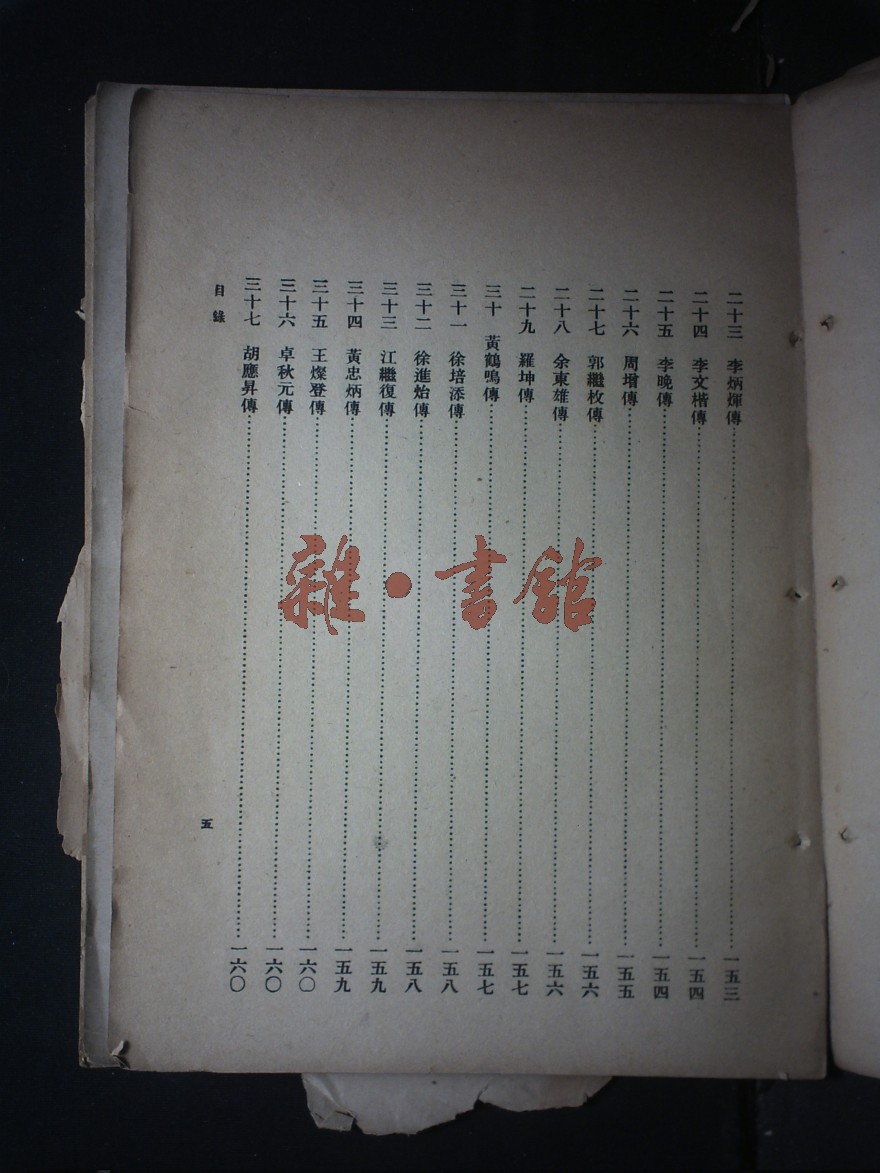 二十三 李炳輝傳……一五三
二十四 李文楷傳……一五四
二十五 李晚傳……一五四
二十六 周增傳……一五五
二十七 郭繼枚傳……一五六
二十八 余東雄傳……一五六
二十九 羅坤傳……一五七
三十 黃鶴鳴傳……一五七
三十一 徐培添傳……一五八
三十二 徐進炲傳……一五八
三十三 江繼復傳……一五九
三十四 黃忠炳傳……一五九
三十五 王燦登傳……一六〇
三十六 卓秋元傳……一六〇
三十七 胡應昇傳……一六〇
目錄
五
雜·書館